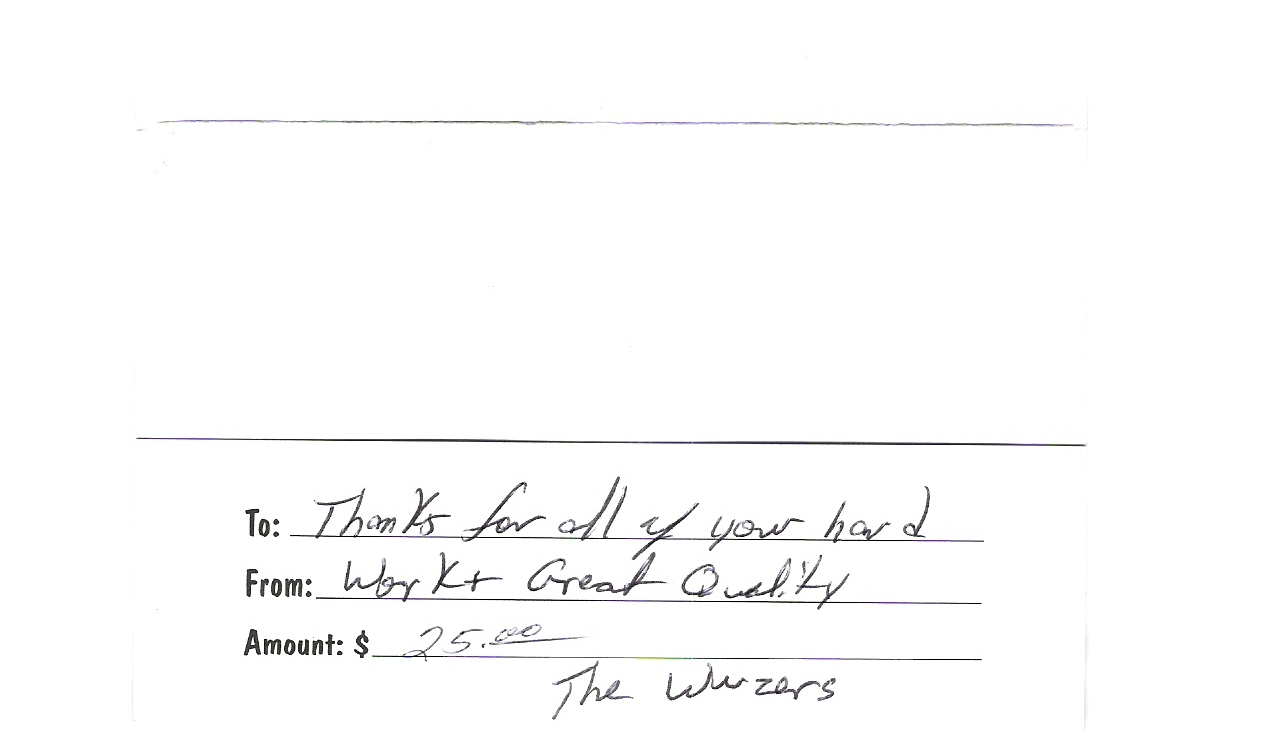 To: Thanks for all of your hard
From: Work + Great Quality
Amount: $ 25.00
The Wurzers